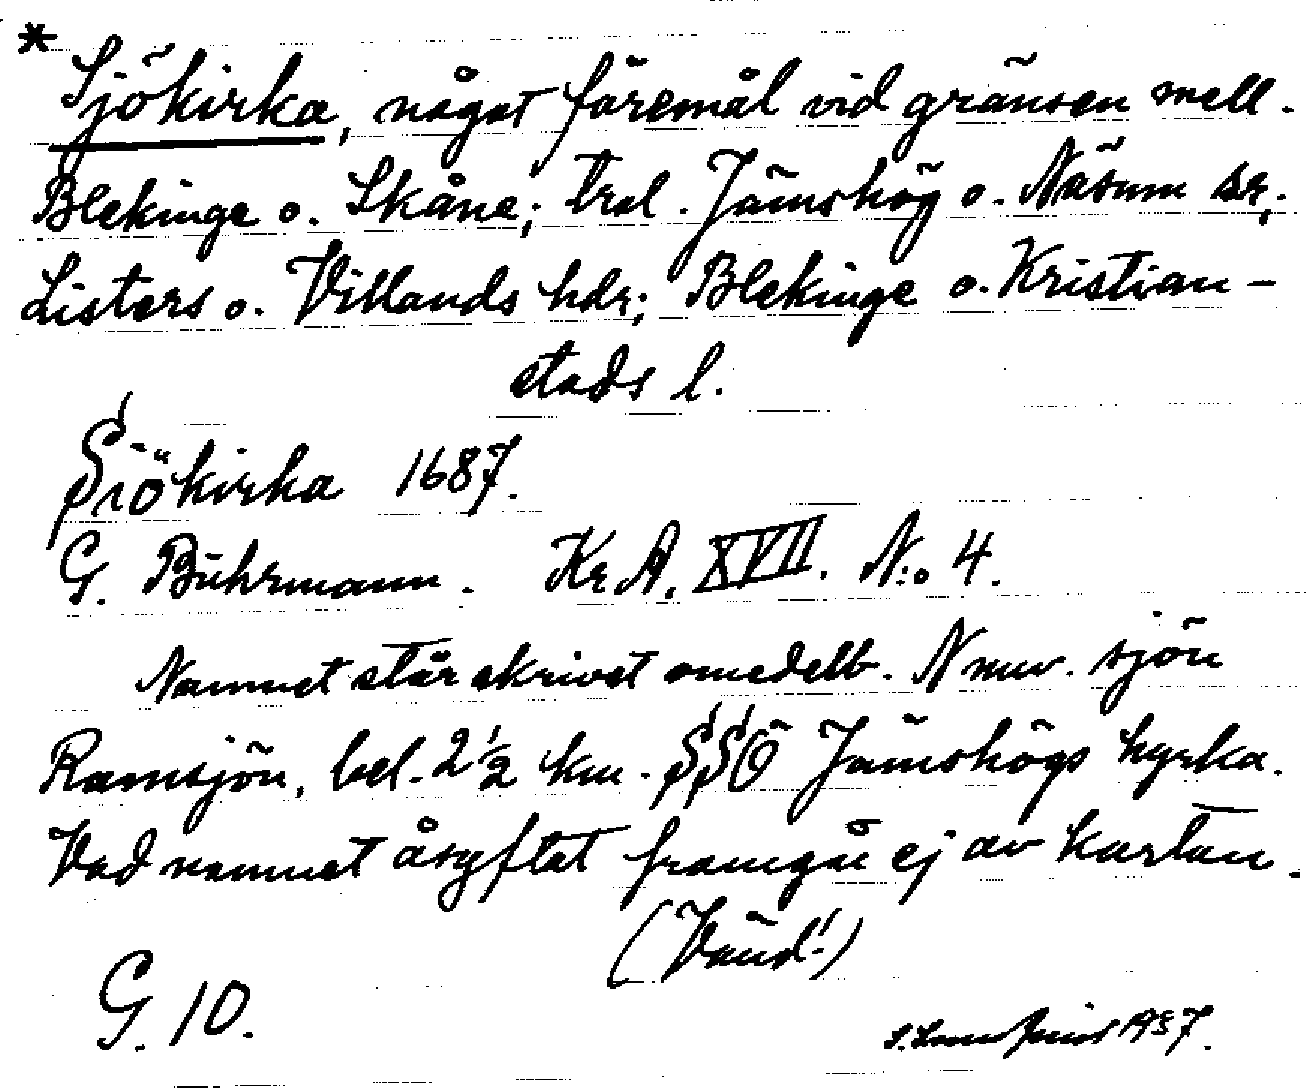 * Sjökirka, något föremål vid gränsen mell.
Blekinge o. Skåne; trol. Jämshög o. Näsum sr,.
Listers o. Villands hdr; Blekinge o. Kristian-
stads l.
Siökirka 1687.
G. Buhrmann. Kr A. XVII. N:o 4.
Namnet står skrivet omedelb. N nuv. sjön
Ramsjön, bel. 2 1/2 km. SSÖ Jämshögs kyrka.
Vad namnet åsyftat framgår ej av kartan.
(Vänd!)
G. 10.
1937.